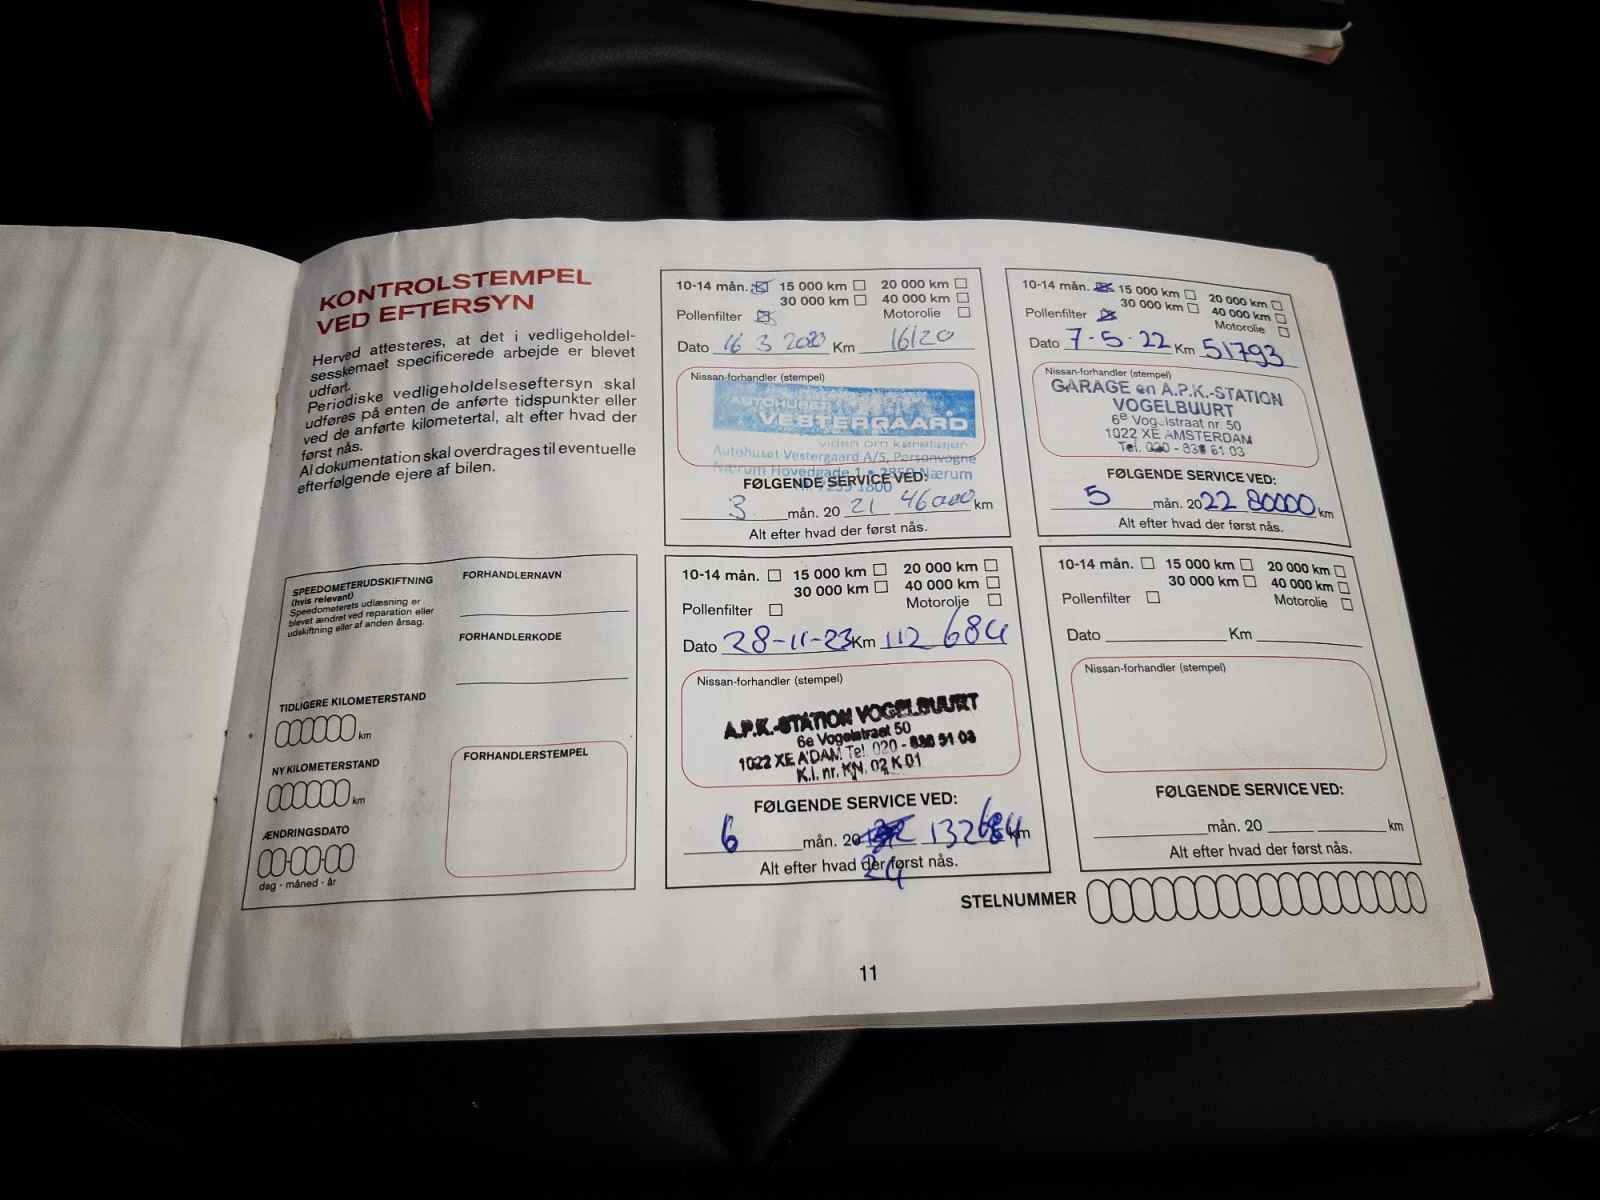 KONTROLSTEMPEL
VED EFTERSYN
Herved attesteres, at det i vedligeholdel-
sesskemaet specificerede arbejde er blevet
udført.
Periodiske vedligeholdelseseftersyn skal
udføres på enten de anførte tidspunkter eller
ved de anførte kilometertal, alt efter hvad der
først nås.
Al dokumentation skal overdrages til eventuelle
efterfølgende ejere af bilen.
SPEEDOMETERUDSKIFTNING
(hvis relevant)
Speedometerets udlæsning er
blevet ændret ved reparation eller
udskiftning eller af anden årsag.
FORHANDLERNAVN
FORHANDLERKODE
TIDLIGERE KILOMETERSTAND
km
NY KILOMETERSTAND
km
ÆNDRINGSDATO
dag - måned - år
FORHANDLERSTEMPEL
10-14 mån. 15 000 km 20 000 km
30 000 km 40 000 km
Pollenfilter Motorolie
Dato 16 3 2020 Km 16120
Nissan-forhandler (stempel)
AUTOHUSET
VESTERGAARD
viden om køreglæder
Autohuset Vestergaard A/S, Personvogne
Nærum Hovedgade 1 • 2850 Nærum
FØLGENDE SERVICE VED:
3 mån. 20 21 46000 km
Alt efter hvad der først nås.
10-14 mån. 15 000 km 20 000 km
30 000 km 40 000 km
Pollenfilter Motorolie
Dato 7-5-22 Km 51793
Nissan-forhandler (stempel)
GARAGE en A.P.K.-STATION
VOGELBUURT
6e Vogelstraat nr. 50
1022 XE AMSTERDAM
Tel. 020 - 61 03
FØLGENDE SERVICE VED:
5 mån. 20 22 80000 km
Alt efter hvad der først nås.
10-14 mån. 15 000 km 20 000 km
30 000 km 40 000 km
Pollenfilter Motorolie
Dato 28-11-23 Km 112 684
Nissan-forhandler (stempel)
A.P.K.-STATION VOGELBUURT
6e Vogelstraat 50
1022 XE A'DAM Tel. 020 -
K.I. nr. KN. 02 K 01
FØLGENDE SERVICE VED:
6 mån. 20 132684 km
Alt efter hvad der først nås.
24
10-14 mån. 15 000 km 20 000 km
30 000 km 40 000 km
Pollenfilter Motorolie
Dato Km
Nissan-forhandler (stempel)
FØLGENDE SERVICE VED:
mån. 20 km
Alt efter hvad der først nås.
STELNUMMER
11